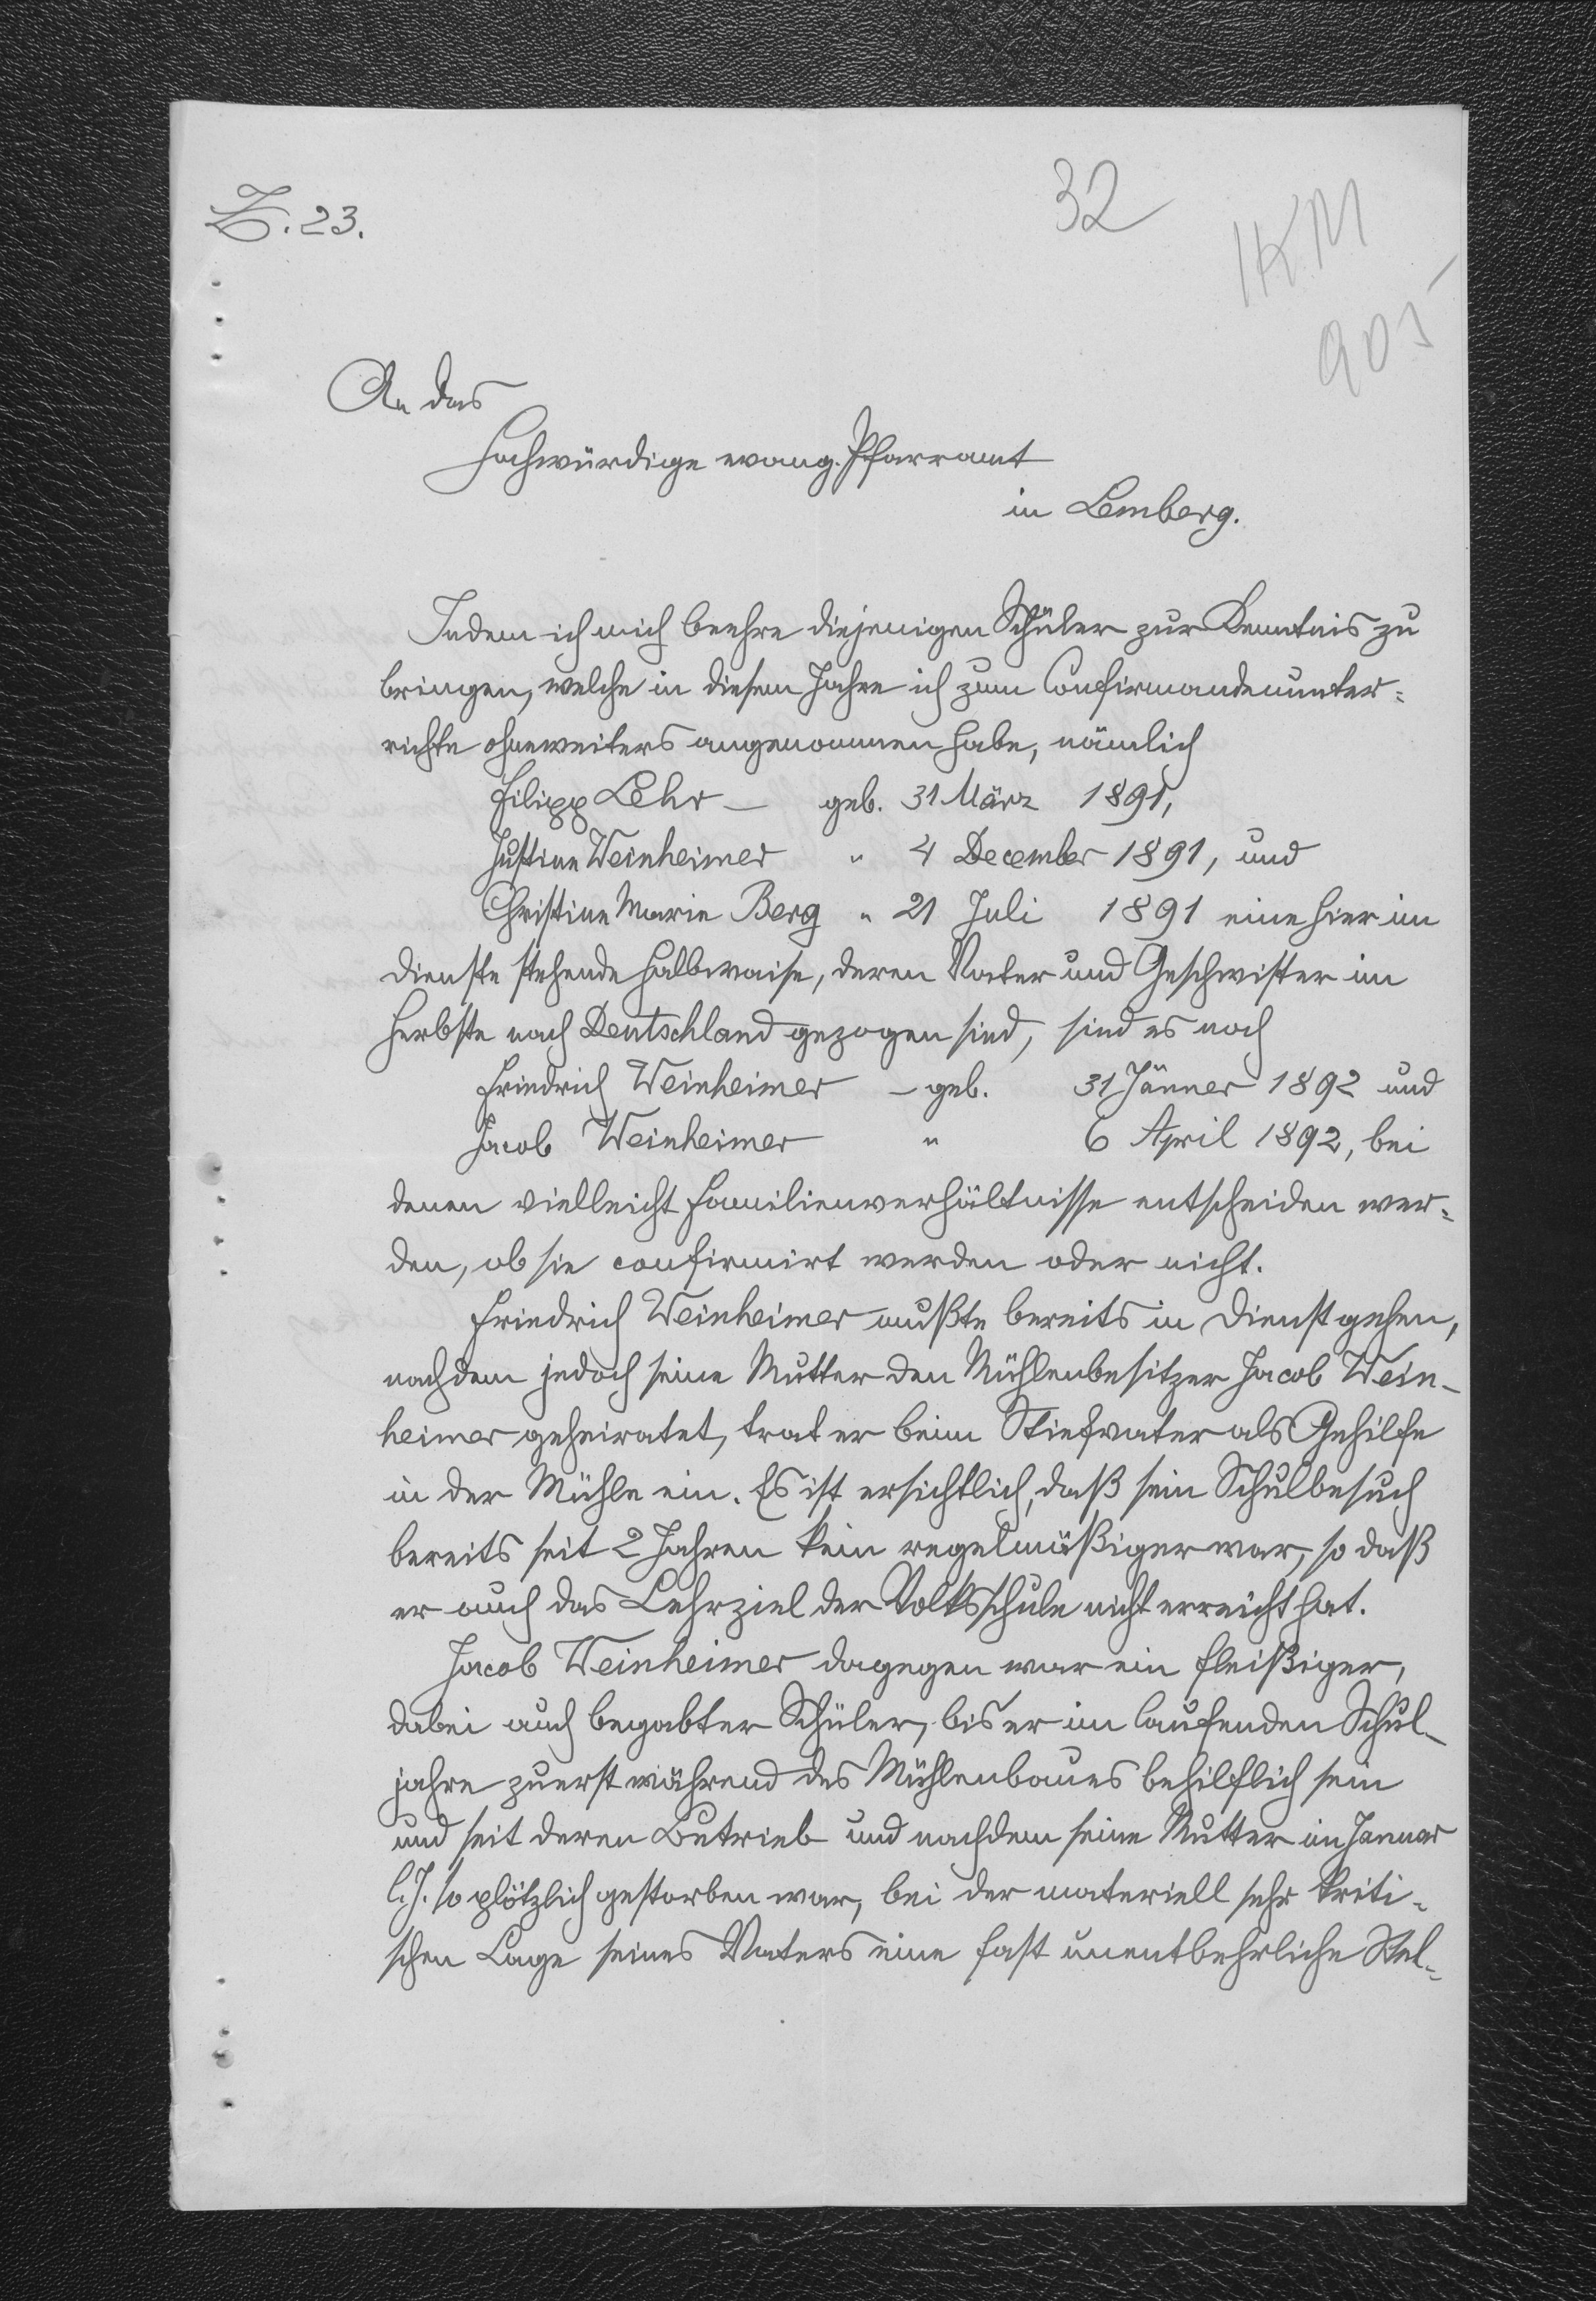 Z. 23.
32
905
An das
Hochwürdige evang. Pfarramt
in Lemberg.
Indem ich mich beehre diejenigen Schüler zur Kenntnis zu
bringen, welche in diesem Jahre ich zum Confirmandenunter-
richte ohneweiters angenommen habe, nämlich
Filipp Lehr – geb. 31 März 1891,
Justine Weinheimer " 4 December 1891, und
Christine Marie Berg " 21 Juli 1891 eine hier im
Dienste stehende Halbwaise, deren Vater und Geschwister im
Herbste nach Deutschland gezogen sind, sind es noch
Friedrich Weinheimer – geb. 31 Jänner 1892 und
Jacob Weinheimer " 6 April 1892, bei
denen vielleicht Familienverhältnisse entscheiden wer-
den, ob sie confirmirt werden oder nicht.
Friedrich Weinheimer mußte bereits in Dienst gehen,
nachdem jedoch seine Mutter den Mühlenbesitzer Jacob Wein-
heimer geheiratet, trat er beim Stiefvater als Gehilfe
in der Mühle ein. Es ist ersichtlich, daß sein Schulbesuch
bereits seit 2 Jahren kein regelmäßiger war, so daß
er auch das Lehrziel der Volksschule nicht erreicht hat.
Jacob Weinheimer dagegen war ein fleißiger,
dabei auch begabter Schüler, bis er im laufenden Schul-
jahre zuerst während des Mühlenbaues behilflich sein
und seit deren Betrieb und nachdem seine Mutter im Januar
l. J. so plötzlich gestorben war, bei der materiell sehr kriti-
schen Lage seines Vaters eine fast unentbehrliche Stel-